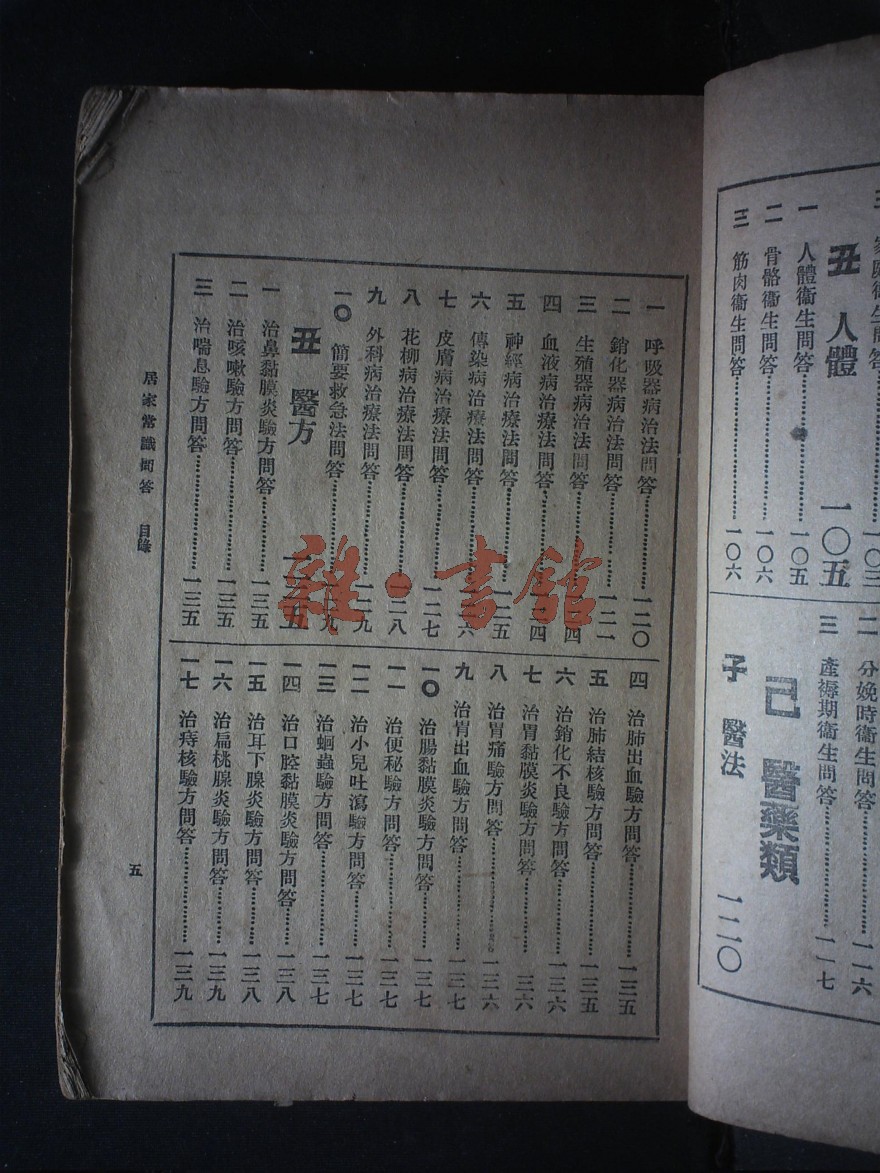 丑　人體　一〇五
一　人體衞生問答……一〇五
二　骨骼衞生問答……一〇六
三　筋肉衞生問答……一〇六
二　分娩時衞生問答……一一六
三　產褥期衞生問答……一一七
己　醫藥類
子　醫法　一二〇
一　呼吸器病治法問答……一二〇
二　銷化器病治法問答……一二一
三　生殖器病治法問答……
四　血液病治療法問答……
五　神經病治療法問答……
六　傳染病治療法問答……
七　皮膚病治療法問答……一二七
八　花柳病治療法問答……一二八
九　外科病治療法問答……一二九
一〇　簡要救急法問答……
丑　醫方
一　治鼻黏膜炎驗方問答……一三五
二　治咳嗽驗方問答……一三五
三　治喘息驗方問答……一三五
四　治肺出血驗方問答……一三五
五　治肺結核驗方問答……一三五
六　治銷化不良驗方問答……一三六
七　治胃黏膜炎驗方問答……三六
八　治胃痛驗方問答……一三六
九　治胃出血驗方問答……一三七
一〇　治腸黏膜炎驗方問答……一三七
一一　治便秘驗方問答……一三七
一二　治小兒吐瀉驗方問答……一三七
一三　治蛔蟲驗方問答……一三七
一四　治口腔黏膜炎驗方問答……一三八
一五　治耳下腺炎驗方問答……一三八
一六　治扁桃腺炎驗方問答……一三九
一七　治痔核驗方問答……一三九
居家常識問答　目錄
五
雜·書館